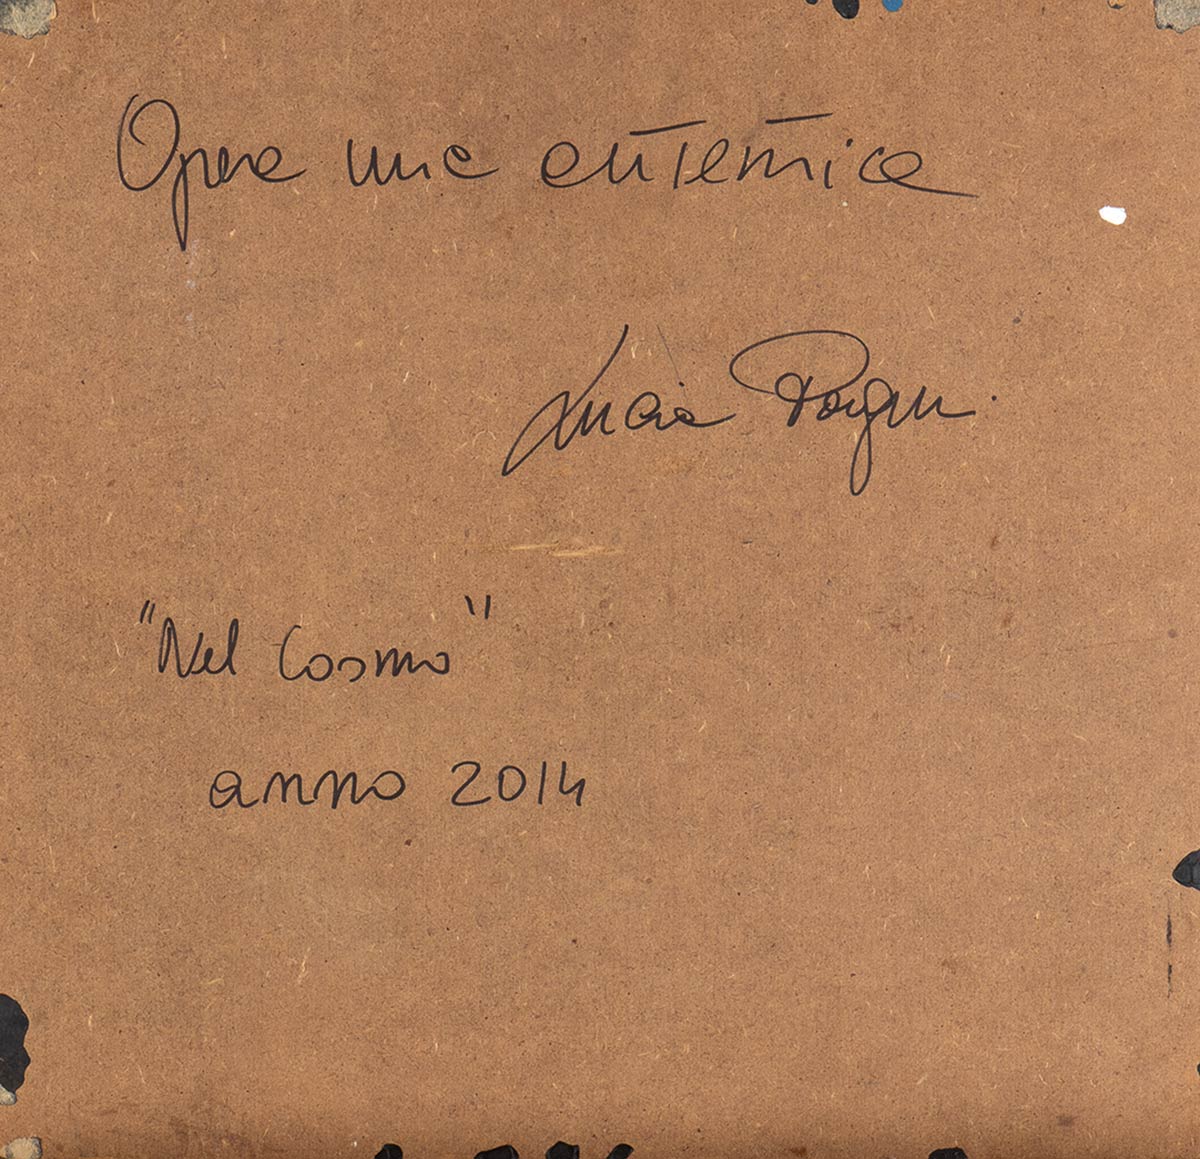 Opera mia autentica
Lucia
"Nel Cosmo"
anno 2014